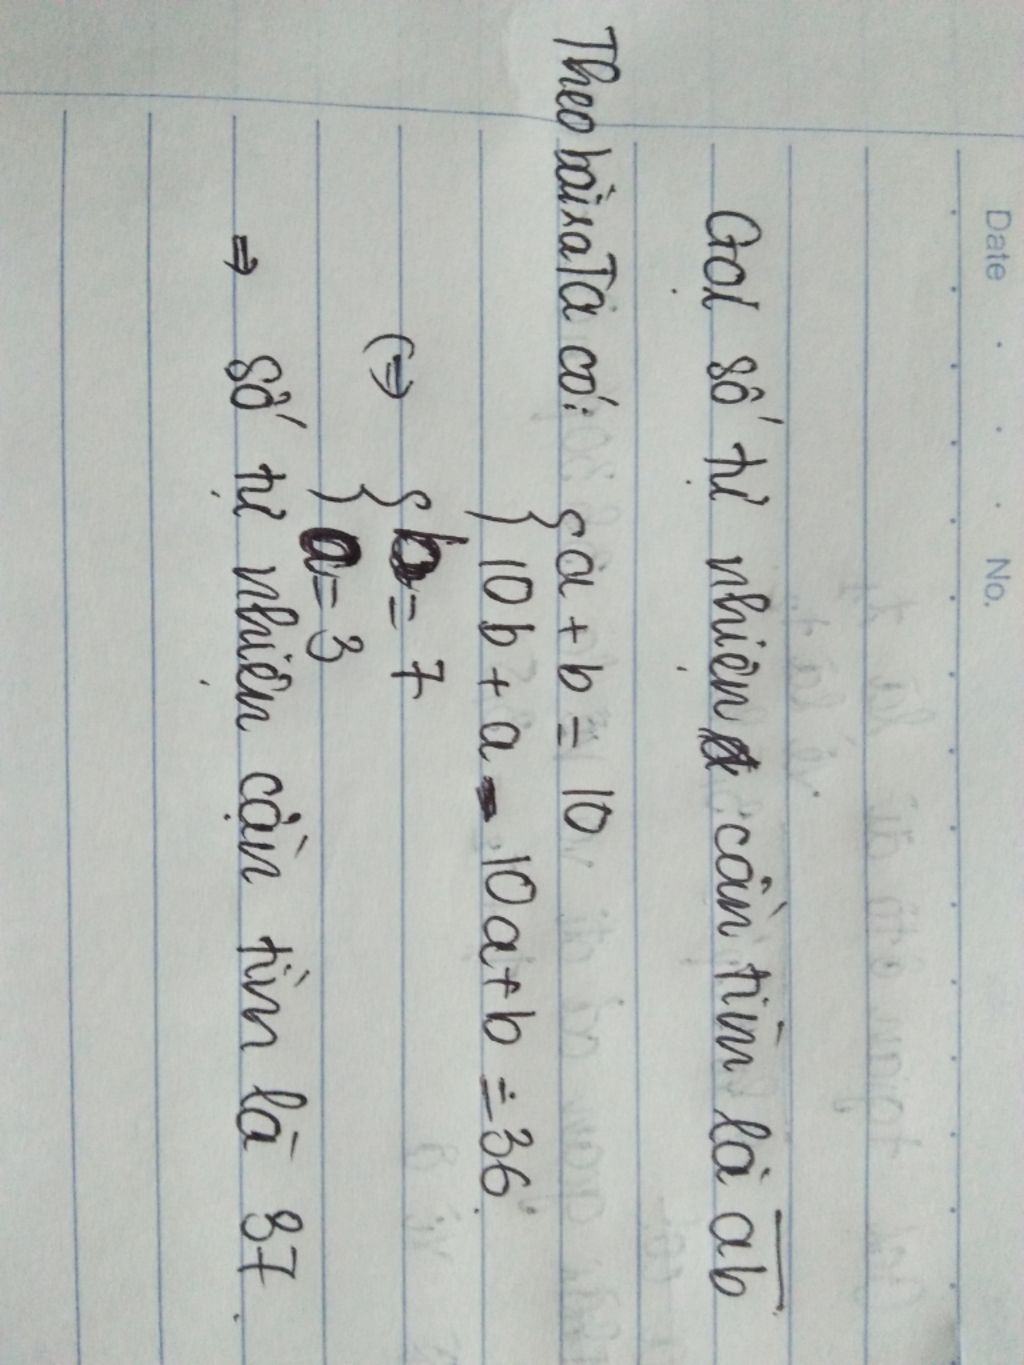 Date No.
Gọi số tự nhiên cần tìm là ab
Theo bài ra Ta có: { a + b = 10
10b + a - 10a + b = 36
(⇒) { b = 7
a = 3
⇒ số tự nhiên cần tìn là 37